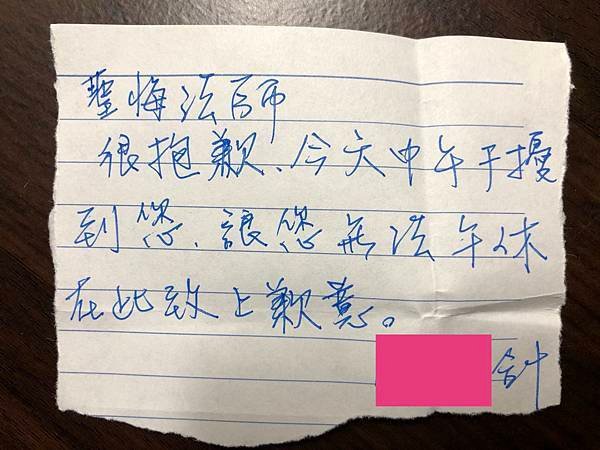 聖悔法師
很抱歉、今天中午干擾
到您、讓您無法午休
在此致上歉意。
合什